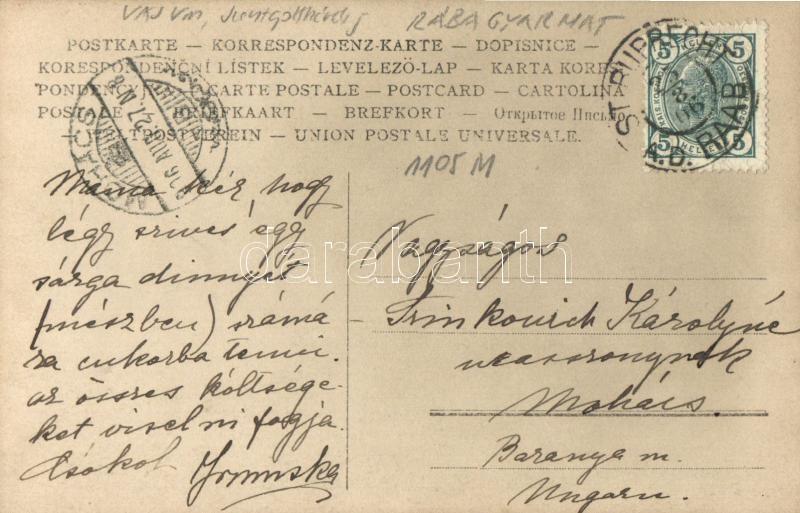 VAS Vm, Szentgotthárd j RÁBAGYARMAT
POSTKARTE – KORRESPONDENZ-KARTE – DOPISNICE –
KORESPONDENČNÍ LÍSTEK – LEVELEZŐ-LAP – KARTA KORES
PONDENC CARTE POSTALE – POSTCARD – CARTOLINA
POSTALE – BRIEFKAART – BREFKORT – Открытое Письмо
WELTPOSTVEREIN – UNION POSTALE UNIVERSALE.
5 5
5 5
HELLER
ST. RUPRECHT
A.D. RAAB
MOHÁCS
1105 M
Mama kér, hogy
légy szives egy
sárga dinnyét
(mészben) számá
ra cukorba tenni.
az összes költsége-
ket viselni fogja.
Csókol
Nagyságos
Trinkovich Károlyné
úrasszonynak
Mohács
Baranya m.
Ungarn.
darabanth